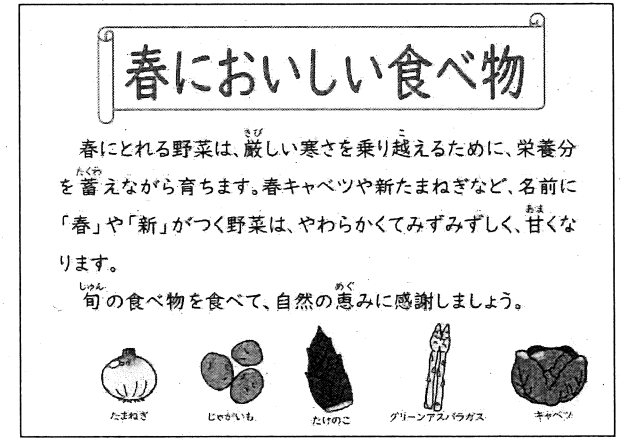 春においしい食べ物
春にとれる野菜は、厳しい寒さを乗り越えるために、栄養分
を蓄えながら育ちます。春キャベツや新たまねぎなど、名前に
「春」や「新」がつく野菜は、やわらかくてみずみずしく、甘くな
ります。
旬の食べ物を食べて、自然の恵みに感謝しましょう。
たまねぎ
じゃがいも
たけのこ
グリーンアスパラガス
キャベツ